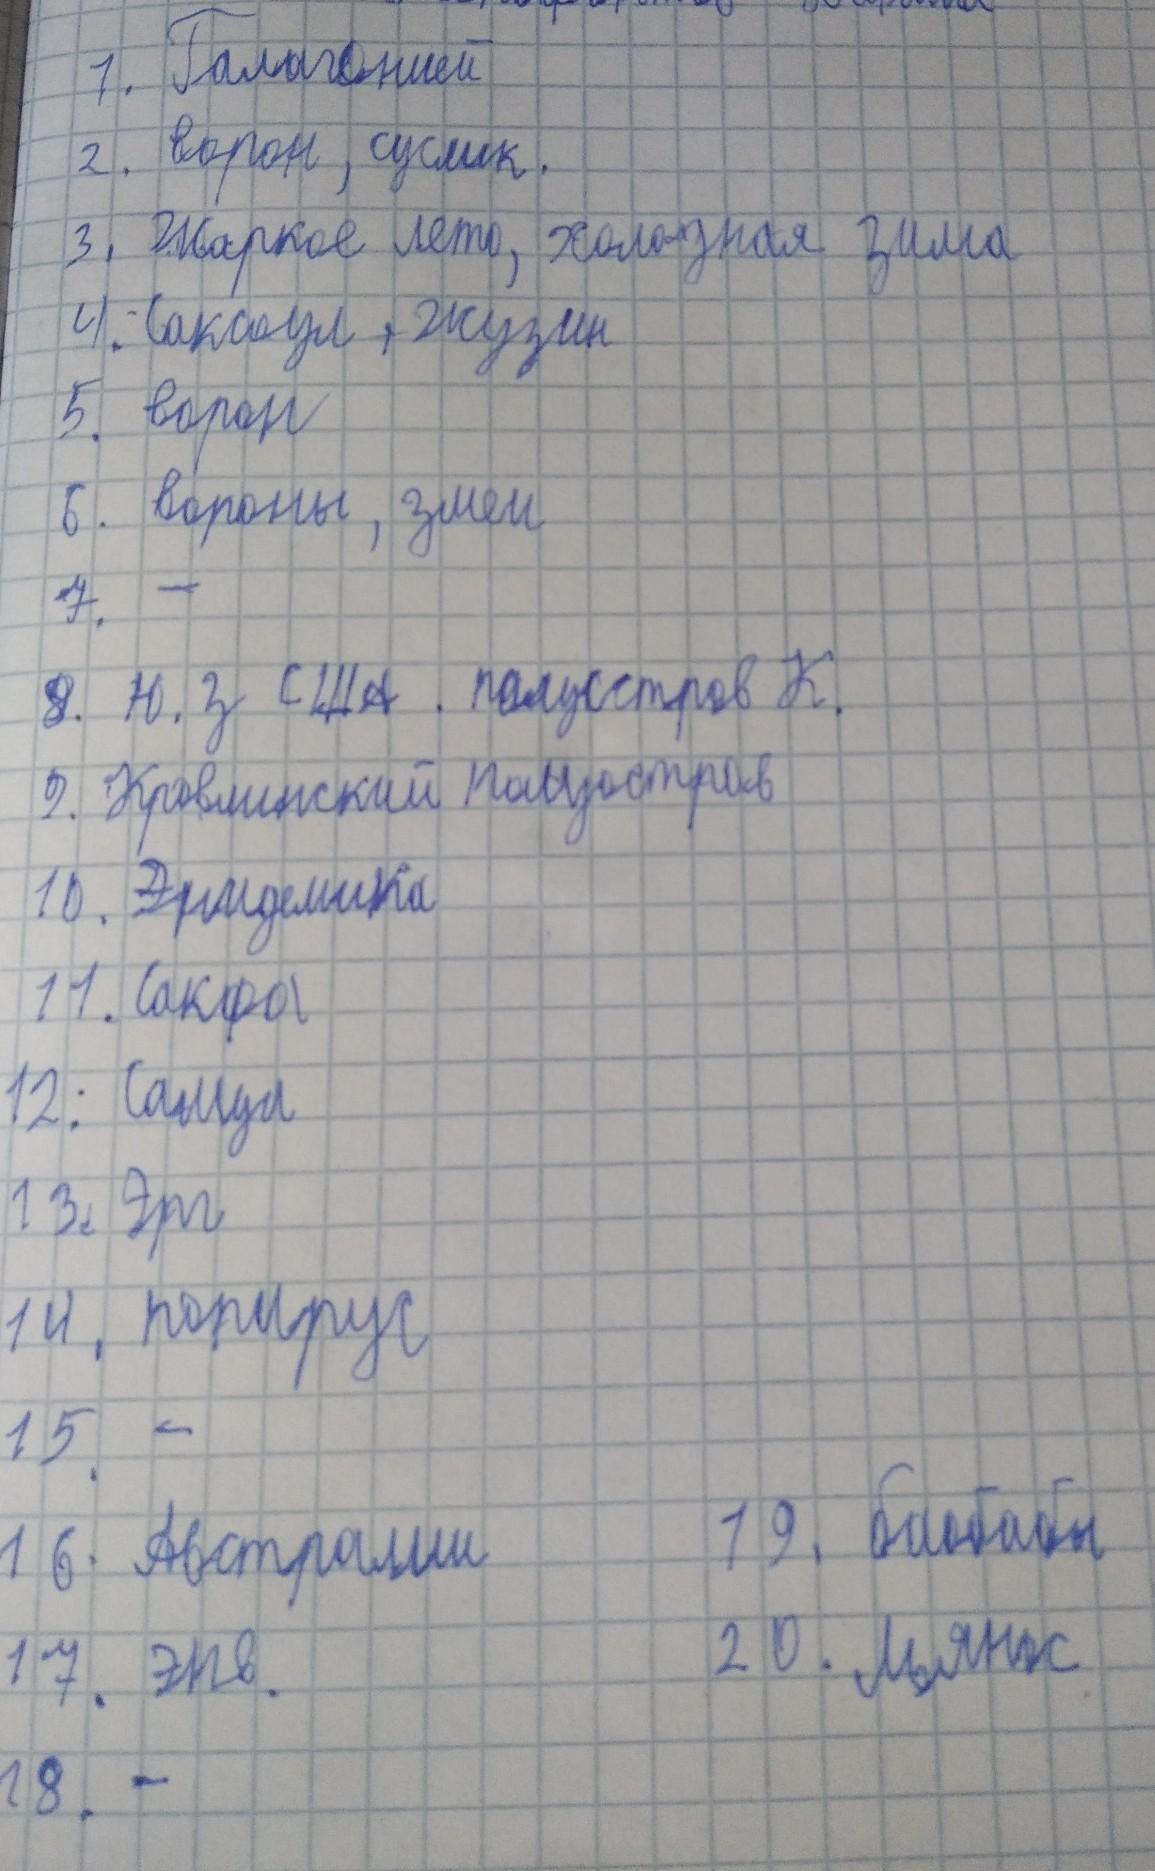 1. Галагонией
2. ворон, суслик.
3. Жаркое лето, холозная зима
4. Саксаул, Жузин
5. ворон
6. вороны, змеи
7. –
8. Ю. З США. полусстров К.
9. Кровлинский полуостров
10. Эпидемика
11. Сакфа
12. Самул
13. Эрг
14. попирус
15. –
16. Австралии
17. ЭПВ.
18. –
19. баобабы
20. Льянос